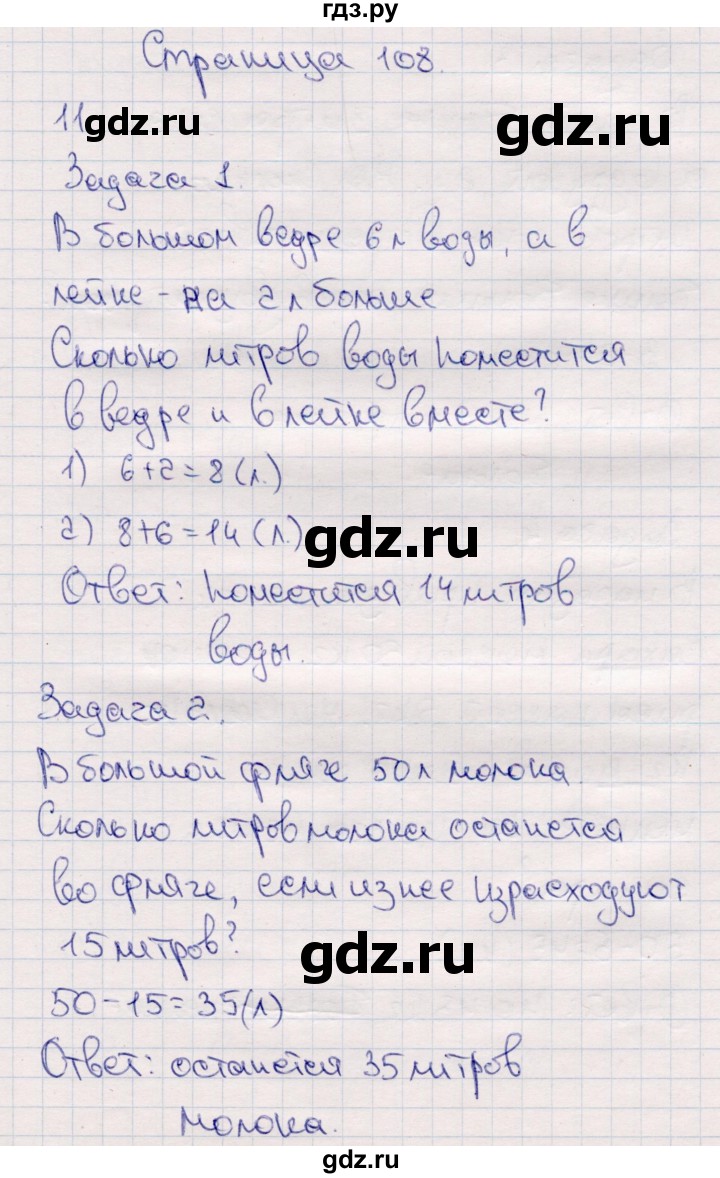 гдз.ру
Страница 108.
11 gdz.ru
gdz.ru
Задача 1.
В большом ведре 6 л воды, а в
лейке - на 2 л больше
Сколько литров воды поместится
в ведре и в лейке вместе?
1) 6+2=8 (л.)
2) 8+6=14 (л.)
gdz.ru
Ответ: поместится 14 литров
воды.
Задача 2.
В большой фляге 50 л молока.
Сколько литров молока останется
во фляге, если из нее израсходуют
15 литров?
gdz.ru
50-15=35(л)
Ответ: останется 35 литров
молока.
gdz.ru